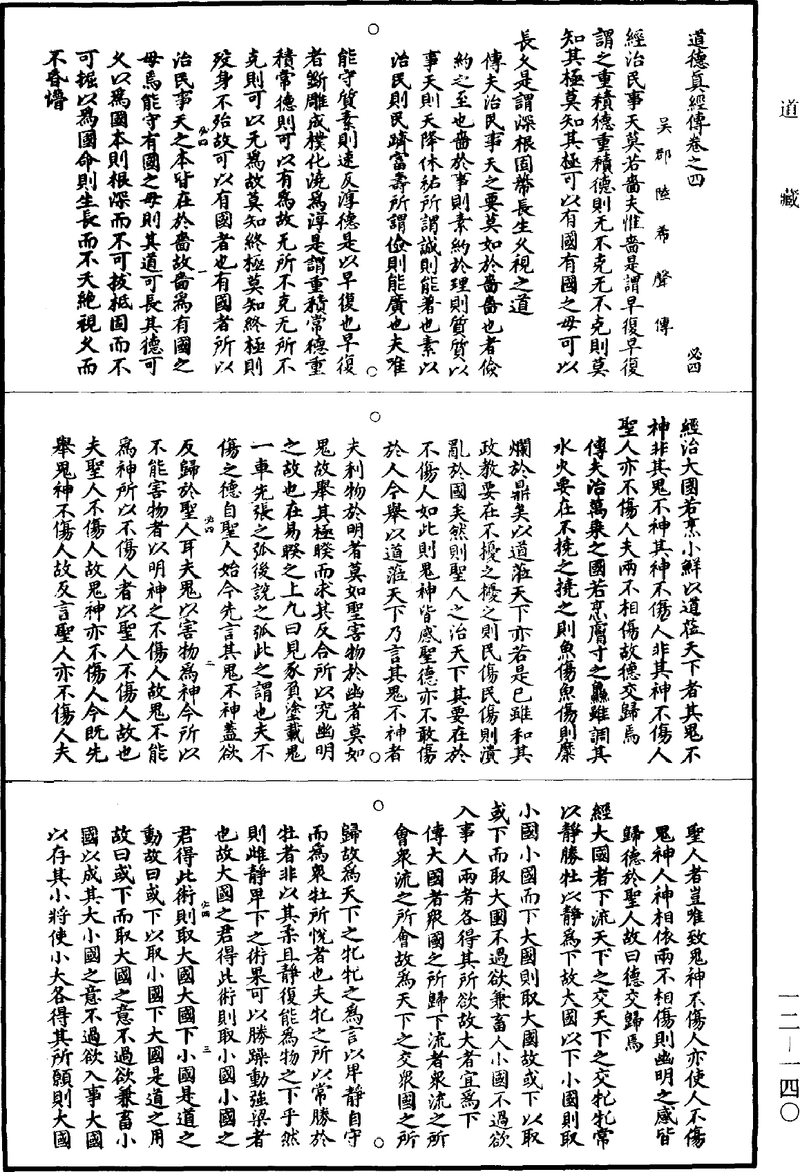 道藏
道德真經傳卷之四
必四
吳郡陸希聲傳
經治民事天莫若嗇夫惟嗇是謂早復早復
謂之重積德重積德則无不克无不克則莫
知其極莫知其極可以有國有國之母可以
長久是謂深根固蔕長生久視之道
傳夫治民事天之要莫如於嗇嗇也者儉
約之至也嗇於事則素約於理則質質以
事天則天降休祐所謂誠則能著也素以
治民則民躋富壽所謂儉則能廣也夫唯
能守質素則速反淳德是以早復也早復
者斷雕成樸化澆為淳是謂重積常德重
積常德則可以有為故无所不克无所不
克則可以无為故莫知終極莫知終極則
歿身不殆故可以有國者也有國者所以
必四
一
治民事天之本皆在於嗇故嗇為有國之
母焉能守有國之母則其道可長其德可
久以為國本則根深而不可拔柢固而不
可掘以為國命則生長而不夭絶視久而
不昏㬱
經治大國若烹小鮮以道蒞天下者其鬼不
神非其鬼不神其神不傷人非其神不傷人
聖人亦不傷人夫兩不相傷故德交歸焉
傳夫治萬乘之國若烹膚寸之鱻雖調其
水火要在不撓之撓之則魚傷魚傷則糜
爛於鼎矣以道蒞天下亦若是已雖和其
政教要在不擾之擾之則民傷民傷則潰
亂於國矣然則聖人之治天下其要在於
不傷人如此則鬼神皆感聖德亦不敢傷
於人今舉以道蒞天下乃言其鬼不神者
夫利物於明者莫如聖害物於幽者莫如
鬼故舉其極睽而求其反合所以究幽明
之故也在易睽之上九曰見豕負塗載鬼
一車先張之弧後說之弧此之謂也夫不
傷之德自聖人始今先言其鬼不神蓋欲
必四
二
反歸於聖人耳夫鬼以害物為神今所以
不能害物者以明神之不傷人故鬼不能
為神所以不傷人者以聖人不傷人故也
夫聖人不傷人故鬼神亦不傷人今既先
舉鬼神不傷人故反言聖人亦不傷人夫
聖人者豈唯致鬼神不傷人亦使人不傷
鬼神人神相依兩不相傷則幽明之感皆
歸德於聖人故曰德交歸焉
經大國者下流天下之交天下之交牝牝常
以靜勝牡以靜為下故大國以下小國則取
小國小國而下大國則取大國故或下以取
或下而取大國不過欲兼畜人小國不過欲
入事人兩者各得其所欲故大者宜為下
傳大國者衆國之所歸下流者衆流之所
會衆流之所會故為天下之交衆國之所
歸故為天下之牝牝之為言以卑靜自守
而為衆牡所悅者也夫牝之所以常勝於
牡者非以其柔且靜復能為物之下乎然
則雌靜卑下之術果可以勝躁動強梁者
也故大國之君得此術則取小國小國之
必四
三
君得此術則取大國大國下小國是道之
動故曰或下以取小國下大國是道之用
故曰或下而取大國之意不過欲兼畜小
國以成其大小國之意不過欲入事大國
以存其小將使小大各得其所願則大國
一二―一四〇